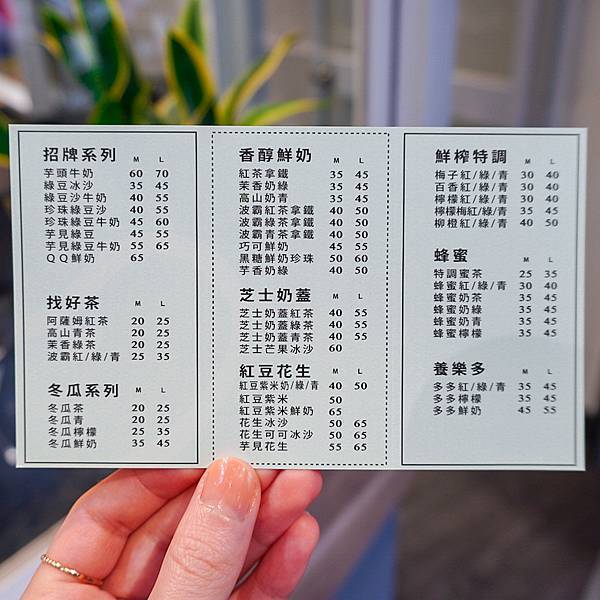 招牌系列 M L
芋頭牛奶 60 70
綠豆冰沙 35 45
綠豆沙牛奶 40 55
珍珠綠豆沙 40 55
珍珠綠豆牛奶 45 60
芋見綠豆 45 55
芋見綠豆牛奶 55 65
QQ鮮奶 65
找好茶 M L
阿薩姆紅茶 20 25
高山青茶 20 25
茉香綠茶 20 25
波霸紅/綠/青 25 35
冬瓜系列 M L
冬瓜茶 20 25
冬瓜青 20 25
冬瓜檸檬 25 35
冬瓜鮮奶 35 45
香醇鮮奶 M L
紅茶拿鐵 35 45
茉香奶綠 35 45
高山奶青 35 45
波霸紅茶拿鐵 40 50
波霸綠茶拿鐵 40 50
波霸青茶拿鐵 40 50
巧可鮮奶 45 55
黑糖鮮奶珍珠 50 60
芋香奶綠 40 50
芝士奶蓋 M L
芝士奶蓋紅茶 40 55
芝士奶蓋綠茶 40 55
芝士奶蓋青茶 40 55
芝士芒果冰沙 60
紅豆花生 M L
紅豆紫米奶/綠/青 40 50
紅豆紫米 50
紅豆紫米鮮奶 65
花生冰沙 50 65
花生可可冰沙 50 65
芋見花生 55 65
鮮榨特調 M L
梅子紅/綠/青 30 40
百香紅/綠/青 30 40
檸檬紅/綠/青 30 40
檸檬梅紅/綠/青 35 45
柳橙紅/綠/青 40 50
蜂蜜 M L
特調蜜茶 25 35
蜂蜜紅/綠/青 30 40
蜂蜜奶茶 35 45
蜂蜜奶綠 35 45
蜂蜜奶青 35 45
蜂蜜檸檬 35 45
養樂多 M L
多多紅/綠/青 35 45
多多檸檬 35 45
多多鮮奶 45 55